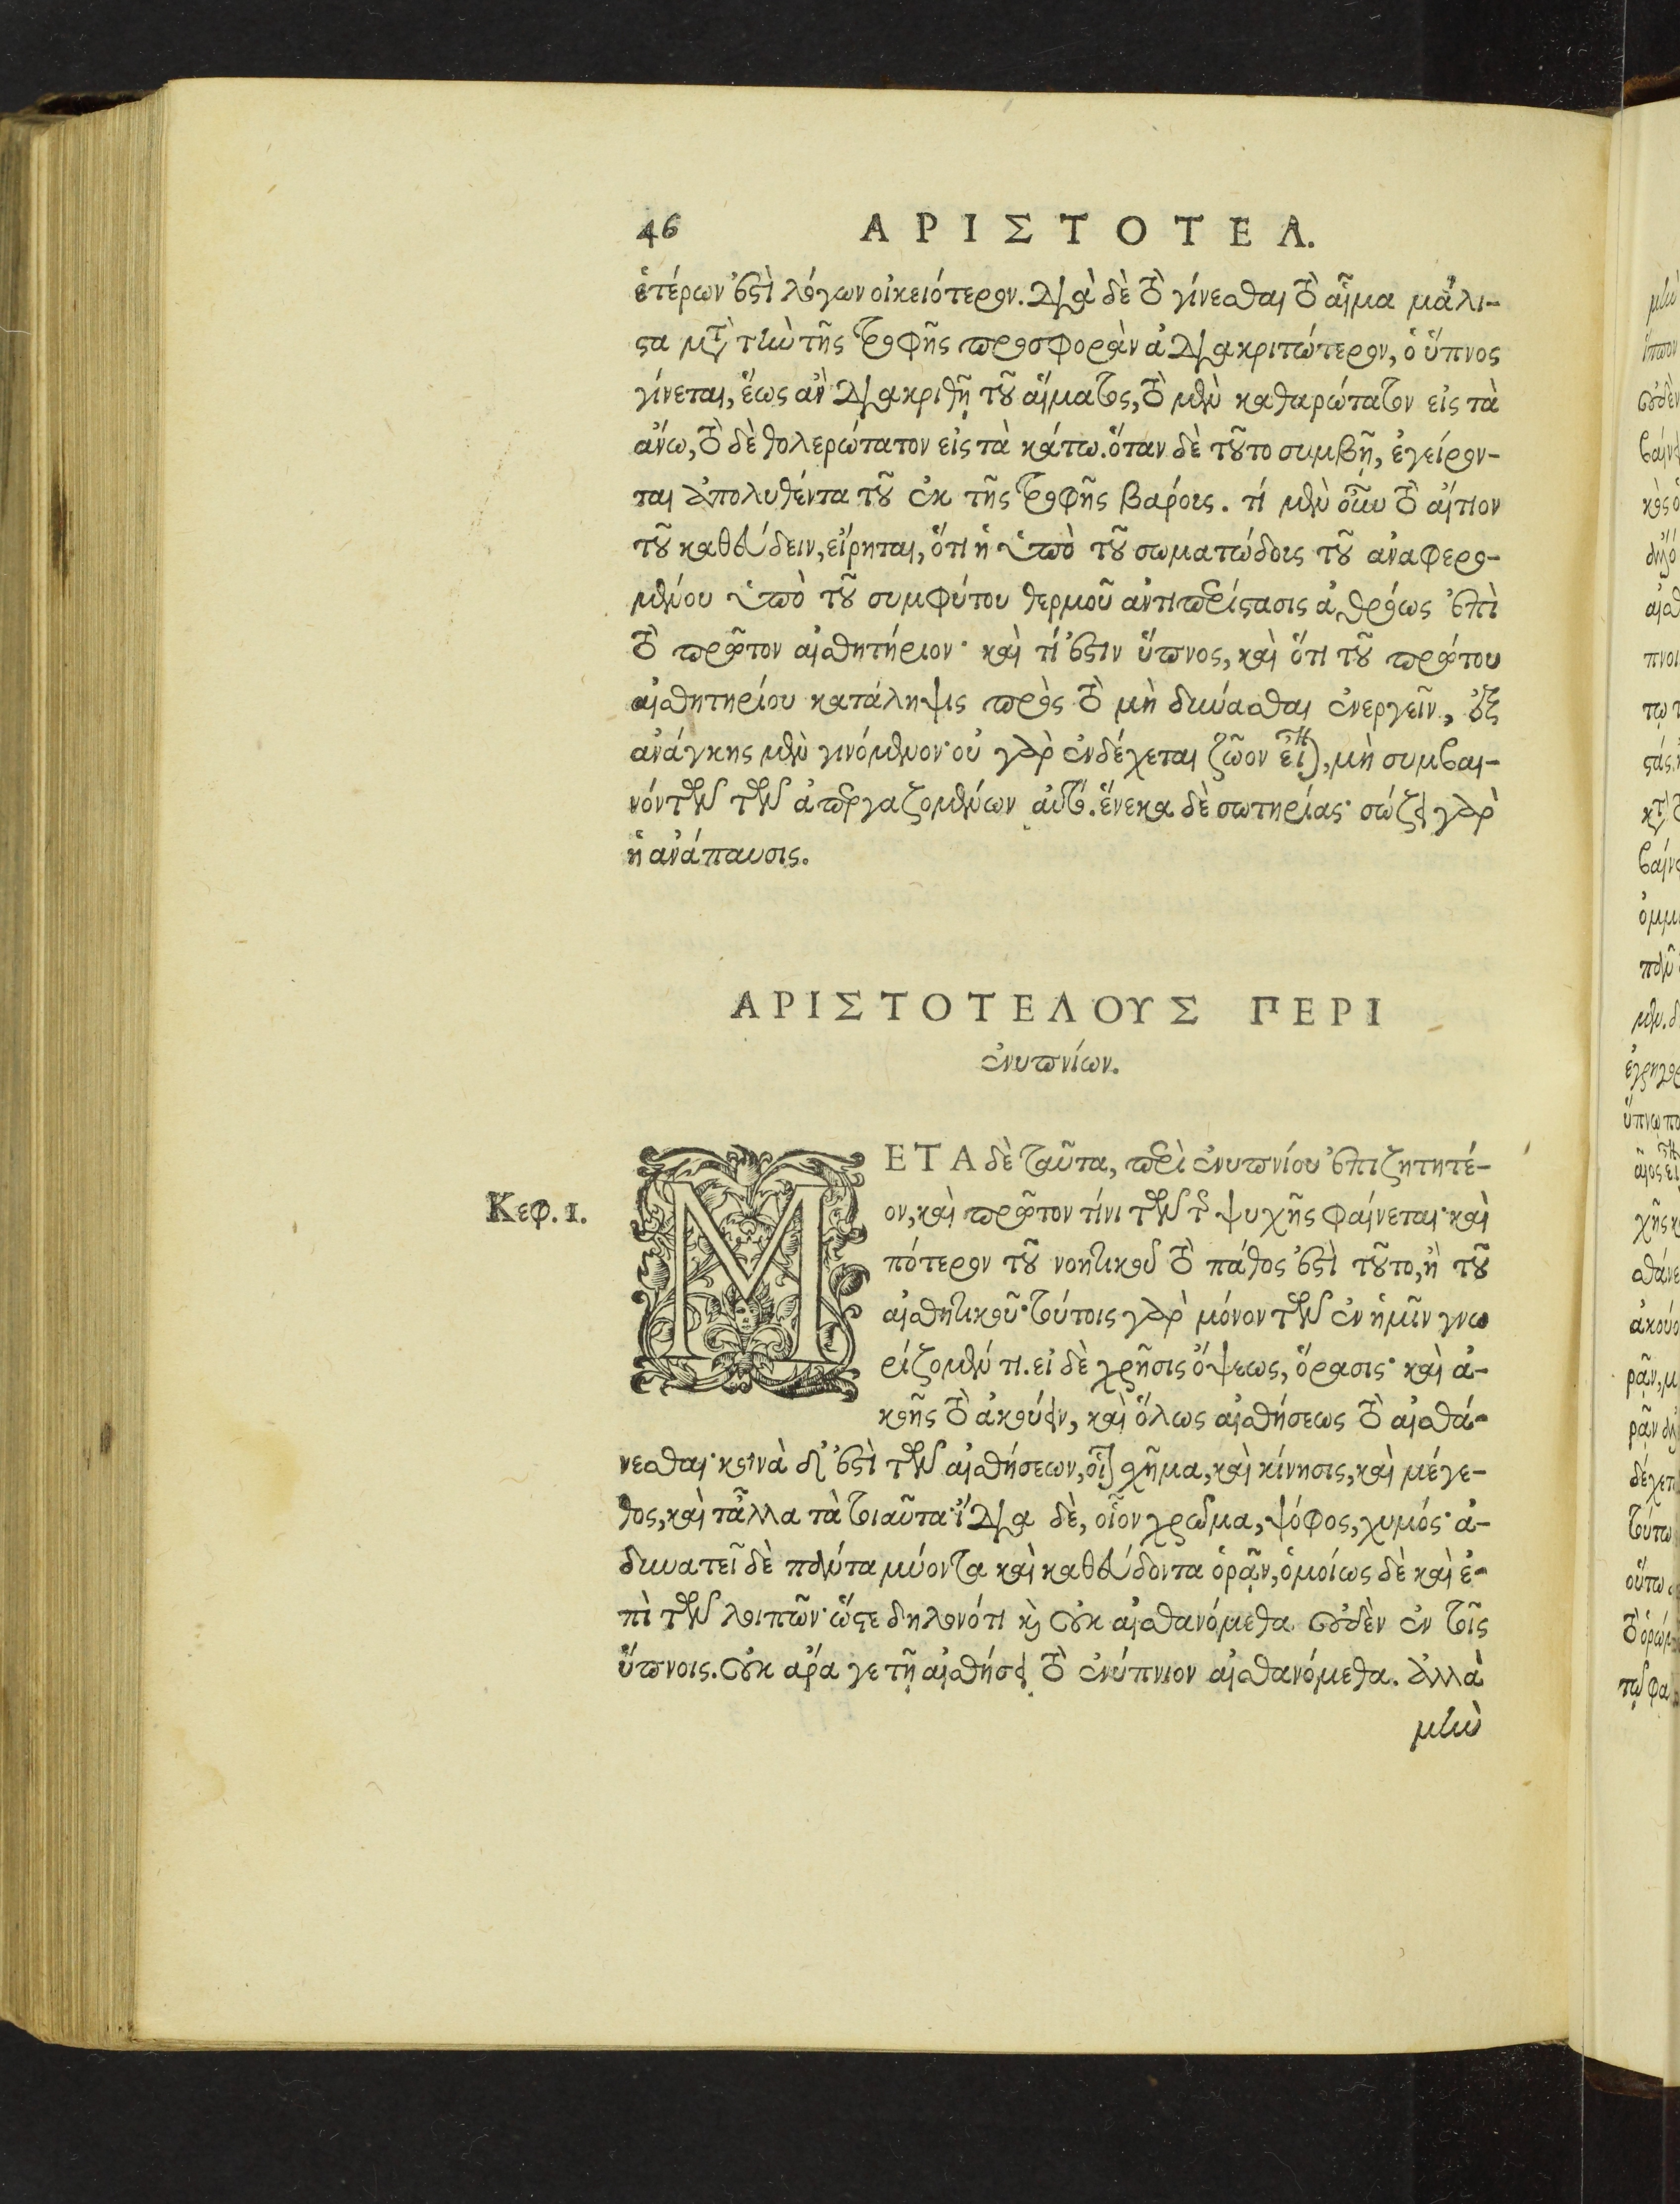 46 ΑΡΙΣΤΟΤΕΛ.
ἑτέρων ἐστὶ λόγων οἰκειότερον. διὰ δὲ τὸ γίνεσθαι τὸ αἷμα μάλι-
στα μετὰ τὴν τῆς τροφῆς προσφορὰν ἀδιακριτώτερον, ὁ ὕπνος
γίνεται, ἕως ἂν διακριθῇ τοῦ αἵματος, τὸ μὲν καθαρώτατον εἰς τὰ
ἄνω, τὸ δὲ θολερώτατον εἰς τὰ κάτω. ὅταν δὲ τοῦτο συμβῇ, ἐγείρον-
ται ἀπολυθέντα τοῦ ἐκ τῆς τροφῆς βάρους. τί μὲν οὖν τὸ αἴτιον
τοῦ καθεύδειν, εἴρηται, ὅτι ἡ ὑπὸ τοῦ σωματώδους τοῦ ἀναφερο-
μένου ὑπὸ τοῦ συμφύτου θερμοῦ ἀντιπερίστασις ἀθρόως ἐπὶ
τὸ πρῶτον αἰσθητήριον· καὶ τί ἐστιν ὕπνος, καὶ ὅτι τοῦ πρώτου
αἰσθητηρίου κατάληψις πρὸς τὸ μὴ δύνασθαι ἐνεργεῖν, ἐξ
ἀνάγκης μὲν γινόμενον· οὐ γὰρ ἐνδέχεται ζῶον εἶναι, μὴ συμβαι-
νόντων τῶν ἀπεργαζομένων αὐτό. ἕνεκα δὲ σωτηρίας· σώζει γὰρ
ἡ ἀνάπαυσις.
ΑΡΙΣΤΟΤΕΛΟΥΣ ΠΕΡΙ
ἐνυπνίων.
Κεφ. 1.
ΜΕΤΑ δὲ ταῦτα, περὶ ἐνυπνίου ἐπιζητητέ-
ον, καὶ πρῶτον τίνι τῶν τῆς ψυχῆς φαίνεται· καὶ
πότερον τοῦ νοητικοῦ τὸ πάθος ἐστὶ τοῦτο, ἢ τοῦ
αἰσθητικοῦ· τούτοις γὰρ μόνον τῶν ἐν ἡμῖν γνω
ρίζομέν τι. εἰ δὲ χρῆσις ὄψεως, ὅρασις· καὶ ἀ-
κοῆς τὸ ἀκούειν, καὶ ὅλως αἰσθήσεως τὸ αἰσθά-
νεσθαι· κοινὰ δ' ἐστὶ τῶν αἰσθήσεων, οἷον σχῆμα, καὶ κίνησις, καὶ μέγε-
θος, καὶ τἆλλα τὰ τοιαῦτα· ἴδια δὲ, οἷον χρῶμα, ψόφος, χυμός· ἀ-
δυνατεῖ δὲ πάντα μύοντα καὶ καθεύδοντα ὁρᾷν, ὁμοίως δὲ καὶ ἐ-
πὶ τῶν λοιπῶν· ὥστε δηλονότι καὶ οὐκ αἰσθανόμεθα οὐδὲν ἐν τοῖς
ὕπνοις. οὐκ ἄρα γε τῇ αἰσθήσει τὸ ἐνύπνιον αἰσθανόμεθα. ἀλλὰ
μὴν